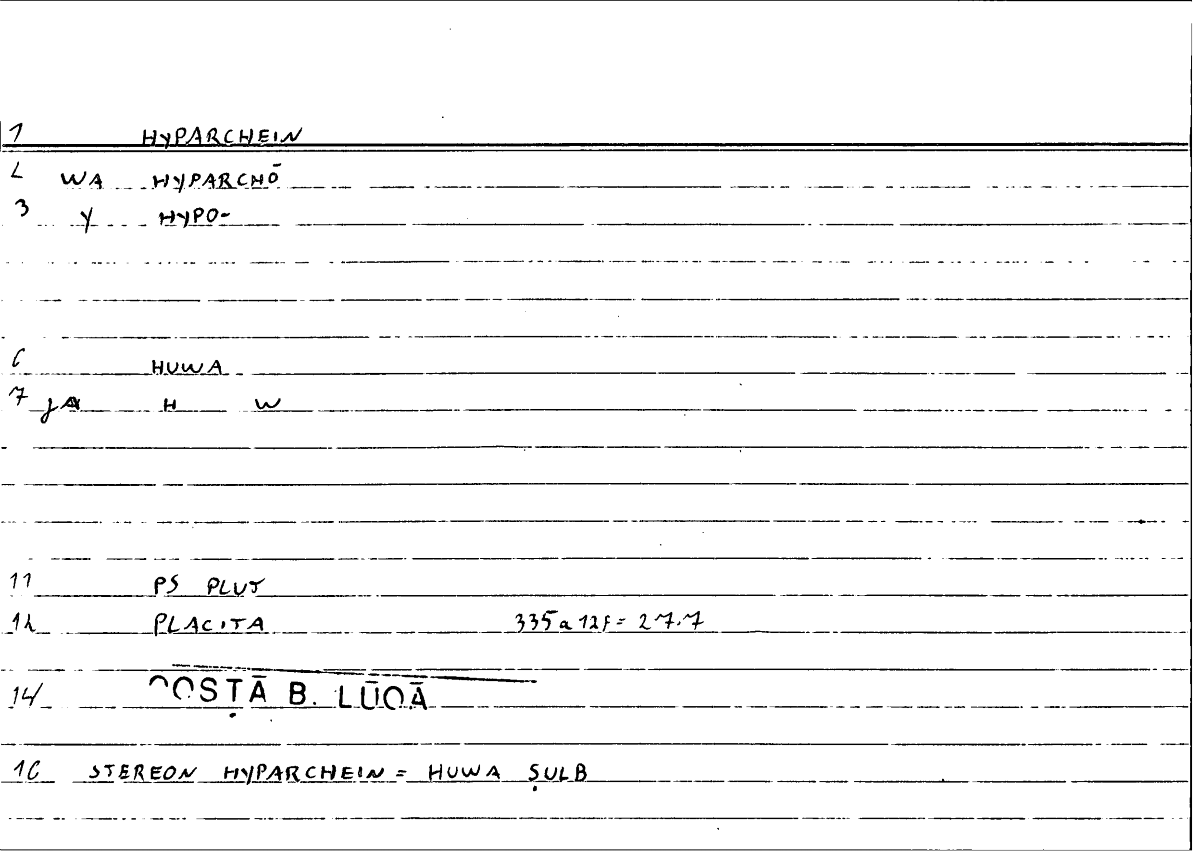 1 HYPARCHEIN
2 WA HYPARCHŌ
3 Y HYPO-
6 HUWA
7 JA H W
11 PS PLUT
12 PLACITA 335a12f = 27.7
14 QOSṬĀ B. LŪQĀ
16 STEREON HYPARCHEIN = HUWA ṢULB